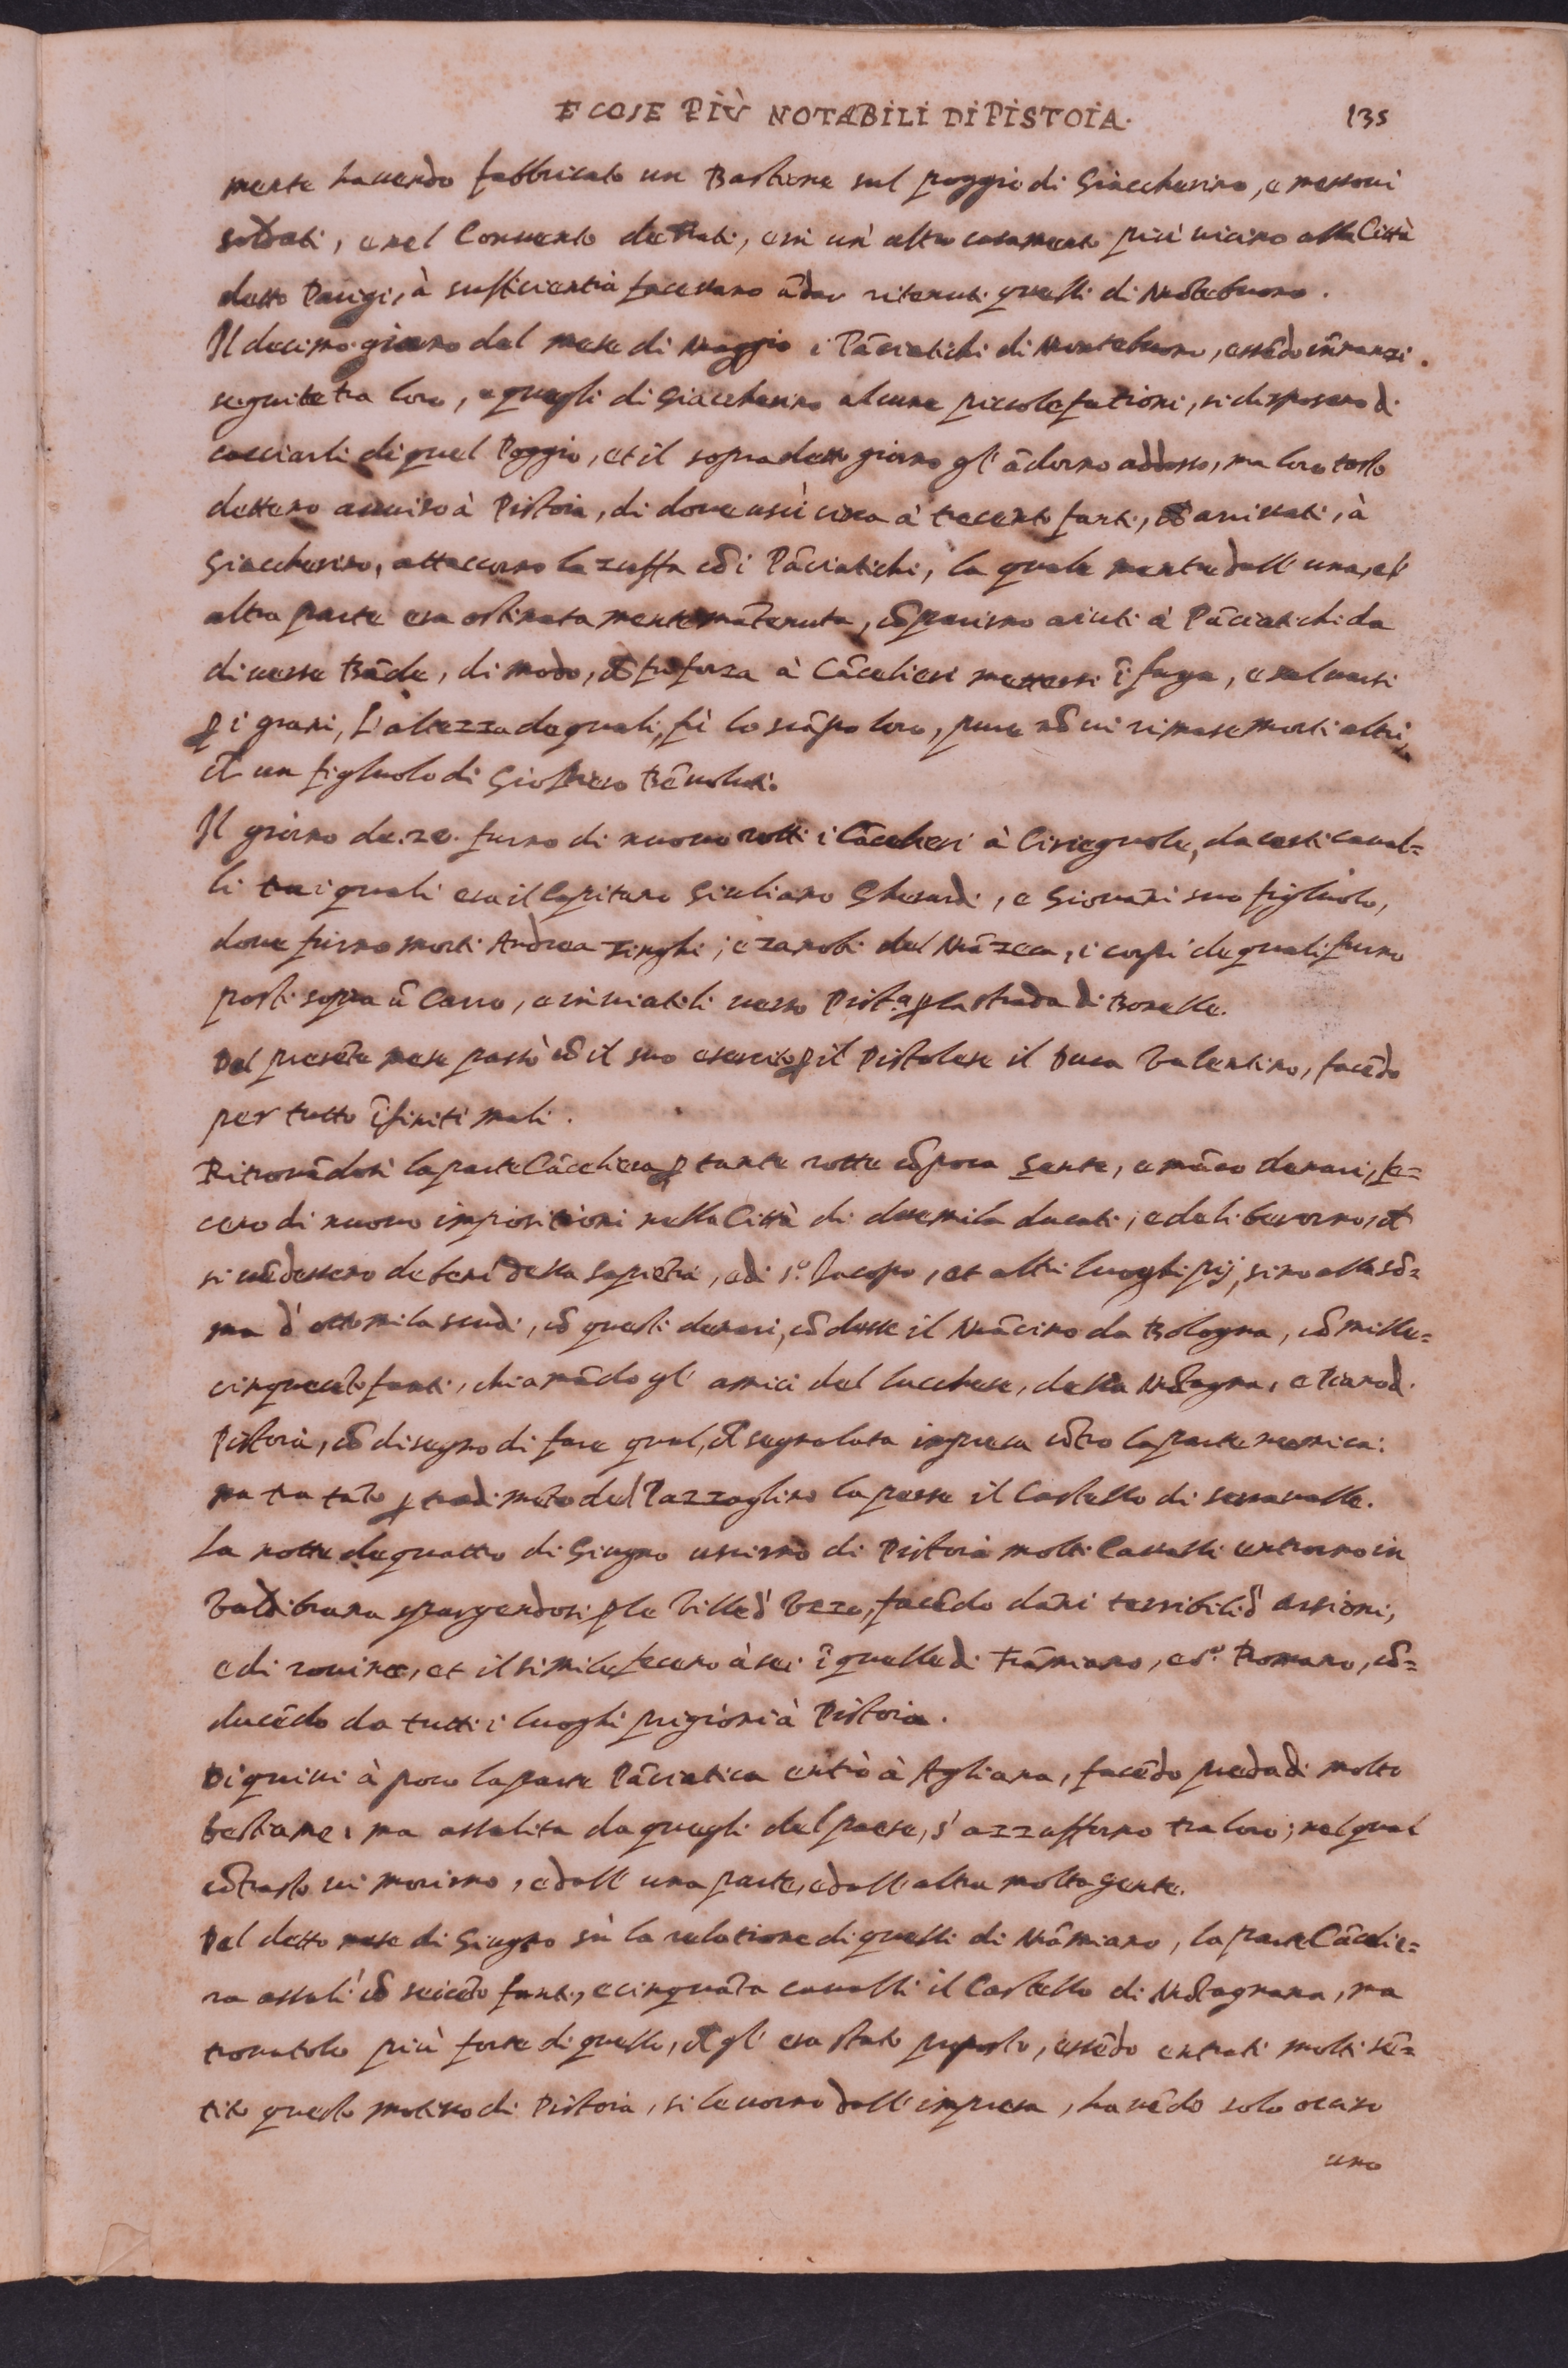 E COSE PIÙ NOTABILI DI PISTOIA. 135
mente hauendo fabbricato un Bastione sul poggio di Giaccherino, e messoui
soldati, e nel Conuento de Frati, e in un' altro casamento più uicino alla Città
detto Parigi, à sufficientia facessano ādar ritenuti quelli di Mōtebuono.
Il decimo giorno del mese di Maggio i Pāciatichi di Montebuono, essēdo īnanzi
seguite tra loro, e quegli di Giaccherino alcune piccole fationi, si disposero di
cacciarli di quel Poggio, et il sopradetto giorno gl' ādorno addosso, ma loro tosto
dettero auuiso à Pistoia, di doue uscì circa à trecento fanti, arriuati, à
Giaccherino, attaccorno la zuffa cō i Pāciatichi, la quale mentre dall' una, e l'
altra parte era ostinatamente mātenuta, cōparirno aiuti à Pāciatichi da
diuerse Bāde, di modo, ch̄ fu forza à Cācelieri mettersi ī fuga, e saluarsi
ꝑ i grani, L'altezza de quali, fù lo scāpo loro, pure nō ui rimase morti altri,
ch̄ un figliuolo di Bēuoluti.
Il giorno de. 20. furno di nuouo rotti i Cācelieri à Ciriegnole, da certi caual=
li tra i quali era il Capitano Giuliano Gherardi, e Giouāni suo figliuolo,
doue furno morti Andrea Zinghi, e Zanobi del Māzeca, i corpi de quali furno
posti sopra ū Carro, e inuiatili uerso Pist.ᵃ ꝑ la strada di Bonelle.
Del presēte mese passò cō il suo esercito ꝑ il Pistolese il Duca Valentino, facēdo
per tutto īfiniti mali.
Ritrouādosi la parte Cāceliera ꝑ tante rotte cō poca gente, e māco denari, fe=
cero di nuouo impositioni nella Città di duemila ducati, e deliberorno, ch̄
si uēdessero de beni della Sapiētia, e di S.º Iacopo, et altri luoghi pij, sino alla sō=
ma d' ottomila scudi, cō questi denari, cōdusse il Mācino da Bologna, cō mille=
cinquecēto fanti, chiamādo gl' amici del lucchese, della Mōtagna, e Piano di
Pistoia, cō disegno di fare qual, ch̄ segnalata impresa cōtro la parte nemica:
ma tra tāto ꝑ tradimēto del Pazzaglino la perse il Castello di Serraualle.
La notte de quattro di Giugno uscirno di Pistoia molti Caualli entrorno in
Valdibrana spargendosi ꝑ le Ville d' Vzzo, facēdo dāni terribili d' arsioni,
e di rouine, et il simile fecero à sei ī quelle di Frāmiano, e S.º Romano, cō=
ducēdo da tutti i luoghi prigioni à Pistoia.
Di quiui à poco la parte Pāciatica ētrò à Agliana, facēdo preda di molto
bestiame, ma assalita da quegli del paese, s' azzufforno tra loro; nel qual
cōtrasto ui morirno, e dall' una parte, e dall' altra molta gente.
Del detto mese di Giugno sù la relatione di quelli di Māmiano, la parte Cācelie=
ra assalì cō seicēto fanti, e cinquāta caualli il Castello di Mōtagnana, ma
trouatolo più forte di quello, ch̄ gl' era stato proposto, essēdo entrati molti sē=
tito questo motiuo di Pistoia, si leuorno dall' impresa, hauēdo solo occiso
uno